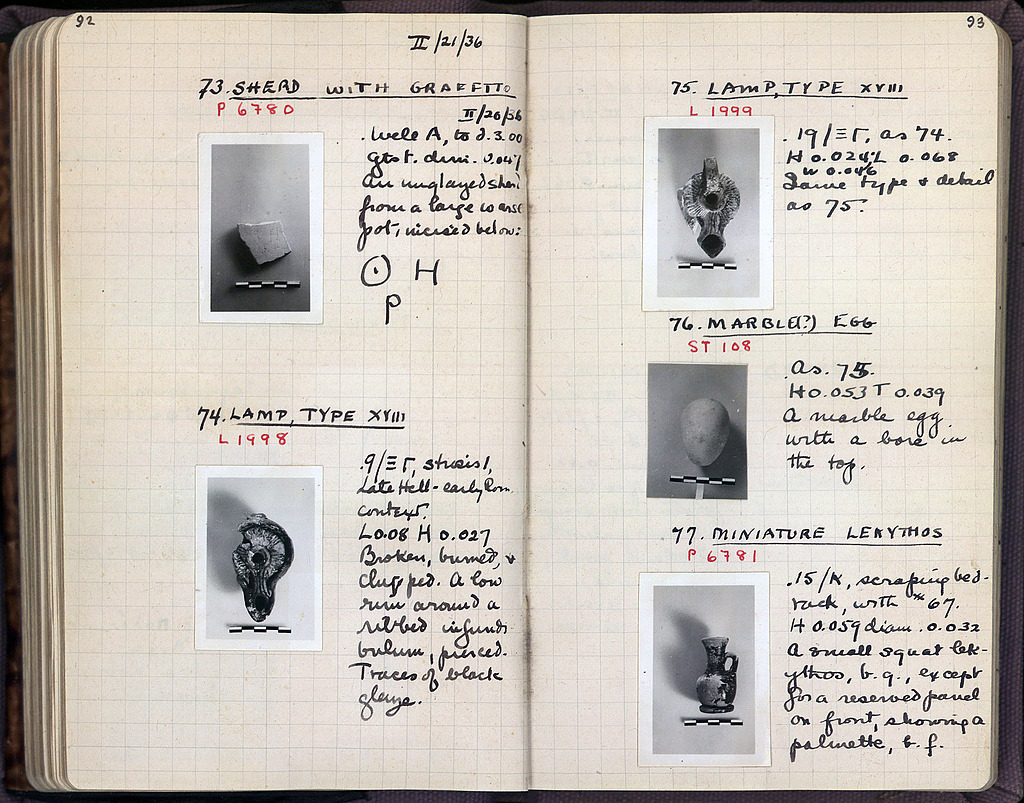 92
II/21/36
73. SHERD WITH GRAFFITO
P 6780
II/20/36
. Well A, to d. 3.00
gtst. dim. 0.047
An unglazed sherd
from a large coarse
pot, incised below:
⊙ H
P
74. LAMP, TYPE XVIII
L 1998
.9/ΞΓ, strosis 1,
Late Hell-early Rom.
context.
L 0.08 H 0.027
Broken, burned, &
chipped. A low
rim around a
ribbed infundi-
bulum, pierced.
Traces of black
glaze.
93
75. LAMP, TYPE XVIII
L 1999
.19/ΞΓ, as 74.
H 0.024 L 0.068
W 0.046
Same type & detail
as 75.
76. MARBLE(?) EGG
ST 108
. As 75.
H 0.053 T 0.039
A marble egg
with a bore in
the top.
77. MINIATURE LEKYTHOS
P 6781
.15/K, scraping bed-
rock, with #67.
H 0.059 diam. 0.032
A small squat lek-
ythos, b.g., except
for a reserved panel
on front, showing a
palmette, b.f.